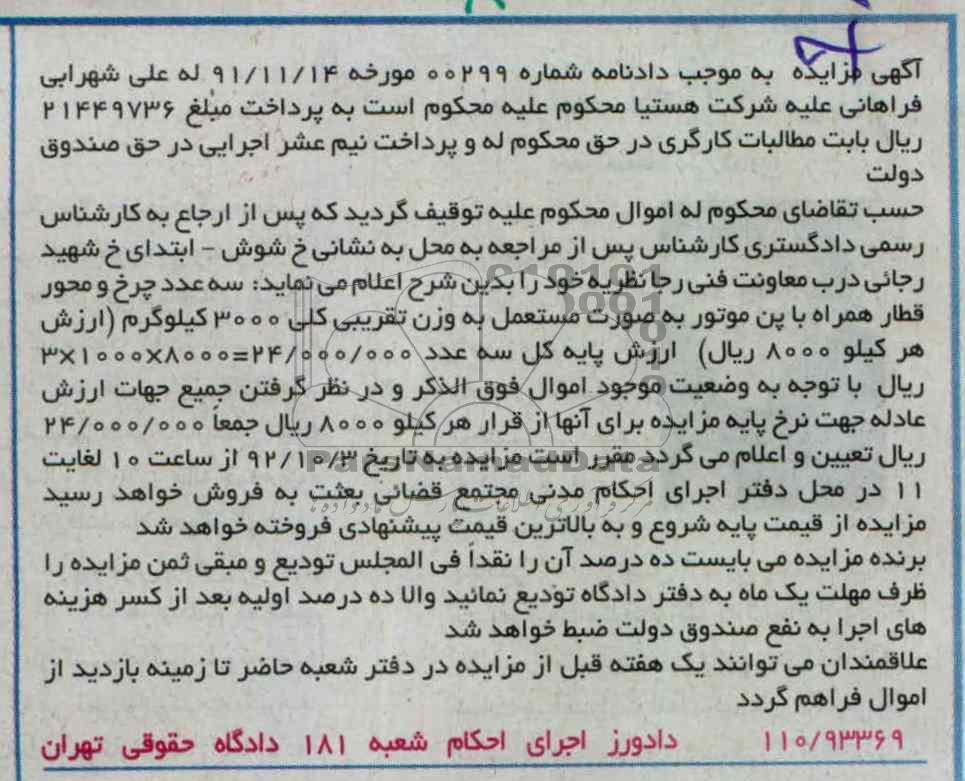 آگهی مزایده به موجب دادنامه شماره ۰۰۲۹۹ مورخه ۹۱/۱۱/۱۴ له علی شهرابی
فراهانی علیه شرکت هستیا محکوم علیه محکوم است به پرداخت مبلغ ۲۱۴۴۹۷۳۶
ریال بابت مطالبات کارگری در حق محکوم له و پرداخت نیم عشر اجرایی در حق صندوق
دولت
حسب تقاضای محکوم له اموال محکوم علیه توقیف گردید که پس از ارجاع به کارشناس
رسمی دادگستری کارشناس پس از مراجعه به محل به نشانی خ شوش - ابتدای خ شهید
رجائی درب معاونت فنی رجا نظریه خود را بدین شرح اعلام می نماید: سه عدد چرخ و محور
قطار همراه با پن موتور به صورت مستعمل به وزن تقریبی کلی ۳۰۰۰ کیلوگرم (ارزش
هر کیلو ۸۰۰۰ ریال) ارزش پایه کل سه عدد ۳×۱۰۰۰×۸۰۰۰=۲۴/۰۰۰/۰۰۰
ریال با توجه به وضعیت موجود اموال فوق الذکر و در نظر گرفتن جمیع جهات ارزش
عادله جهت نرخ پایه مزایده برای آنها از قرار هر کیلو ۸۰۰۰ ریال جمعاً ۲۴/۰۰۰/۰۰۰
ریال تعیین و اعلام می گردد مقرر است مزایده به تاریخ ۹۲/۱۰/۳ از ساعت ۱۰ لغایت
۱۱ در محل دفتر اجرای احکام مدنی مجتمع قضائی بعثت به فروش خواهد رسید
مزایده از قیمت پایه شروع و به بالاترین قیمت پیشنهادی فروخته خواهد شد
برنده مزایده می بایست ده درصد آن را نقداً فی المجلس تودیع و مبقی ثمن مزایده را
ظرف مهلت یک ماه به دفتر دادگاه تودیع نمائید والا ده درصد اولیه بعد از کسر هزینه
های اجرا به نفع صندوق دولت ضبط خواهد شد
علاقمندان می توانند یک هفته قبل از مزایده در دفتر شعبه حاضر تا زمینه بازدید از
اموال فراهم گردد
۱۱۰/۹۳۳۶۹ دادورز اجرای احکام شعبه ۱۸۱ دادگاه حقوقی تهران
ParsNamadData